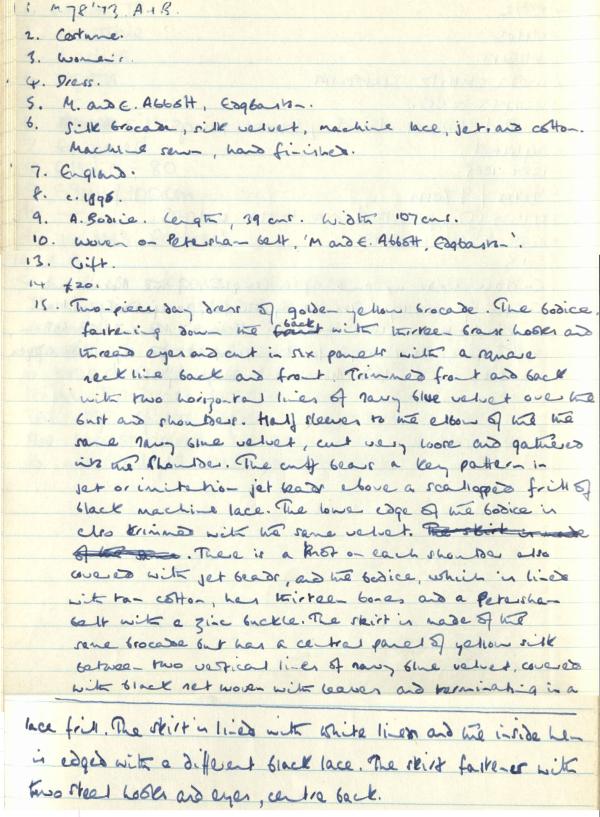 1. M78'73. A+B.
2. Costume.
3. Women's.
4. Dress.
5. M. and E. Abbott, Edgbaston.
6. Silk brocade, silk velvet, machine lace, jet, and cotton.
Machine sewn, hand finished.
7. England.
8. c.1896.
9. A. Bodice. Length, 39 cms. Width 107 cms.
10. Woven on Petersham belt, 'M and E. Abbott, Edgbaston'.
13. Gift.
14 £20.
15. Two-piece day dress of golden yellow brocade. The bodice,
fastening down the front back with thirteen brass hooks and
thread eyes and cut in six panels with a square
neckline back and front. Trimmed front and back
with two horizontal lines of navy blue velvet over the
bust and shoulders. Half sleeves to the elbow of the the
same navy blue velvet, cut very loose and gathered
into the shoulder. The cuff bears a key pattern in
jet or imitation jet beads above a scalloped frill of
black machine lace. The lower edge of the bodice is
also trimmed with the same velvet. The skirt is made
of the same. There is a knot on each shoulder also
covered with jet beads, and the bodice, which is lined
with tan cotton, has thirteen bones and a Petersham
belt with a zinc buckle. The skirt is made of the
same brocade but has a central panel of yellow silk
between two vertical lines of navy blue velvet, covered
with black net woven with leaves and terminating in a
lace frill. The skirt is lined with white linen and the inside hem
is edged with a different black lace. The skirt fastenes with
two steel hooks and eyes, centre back.